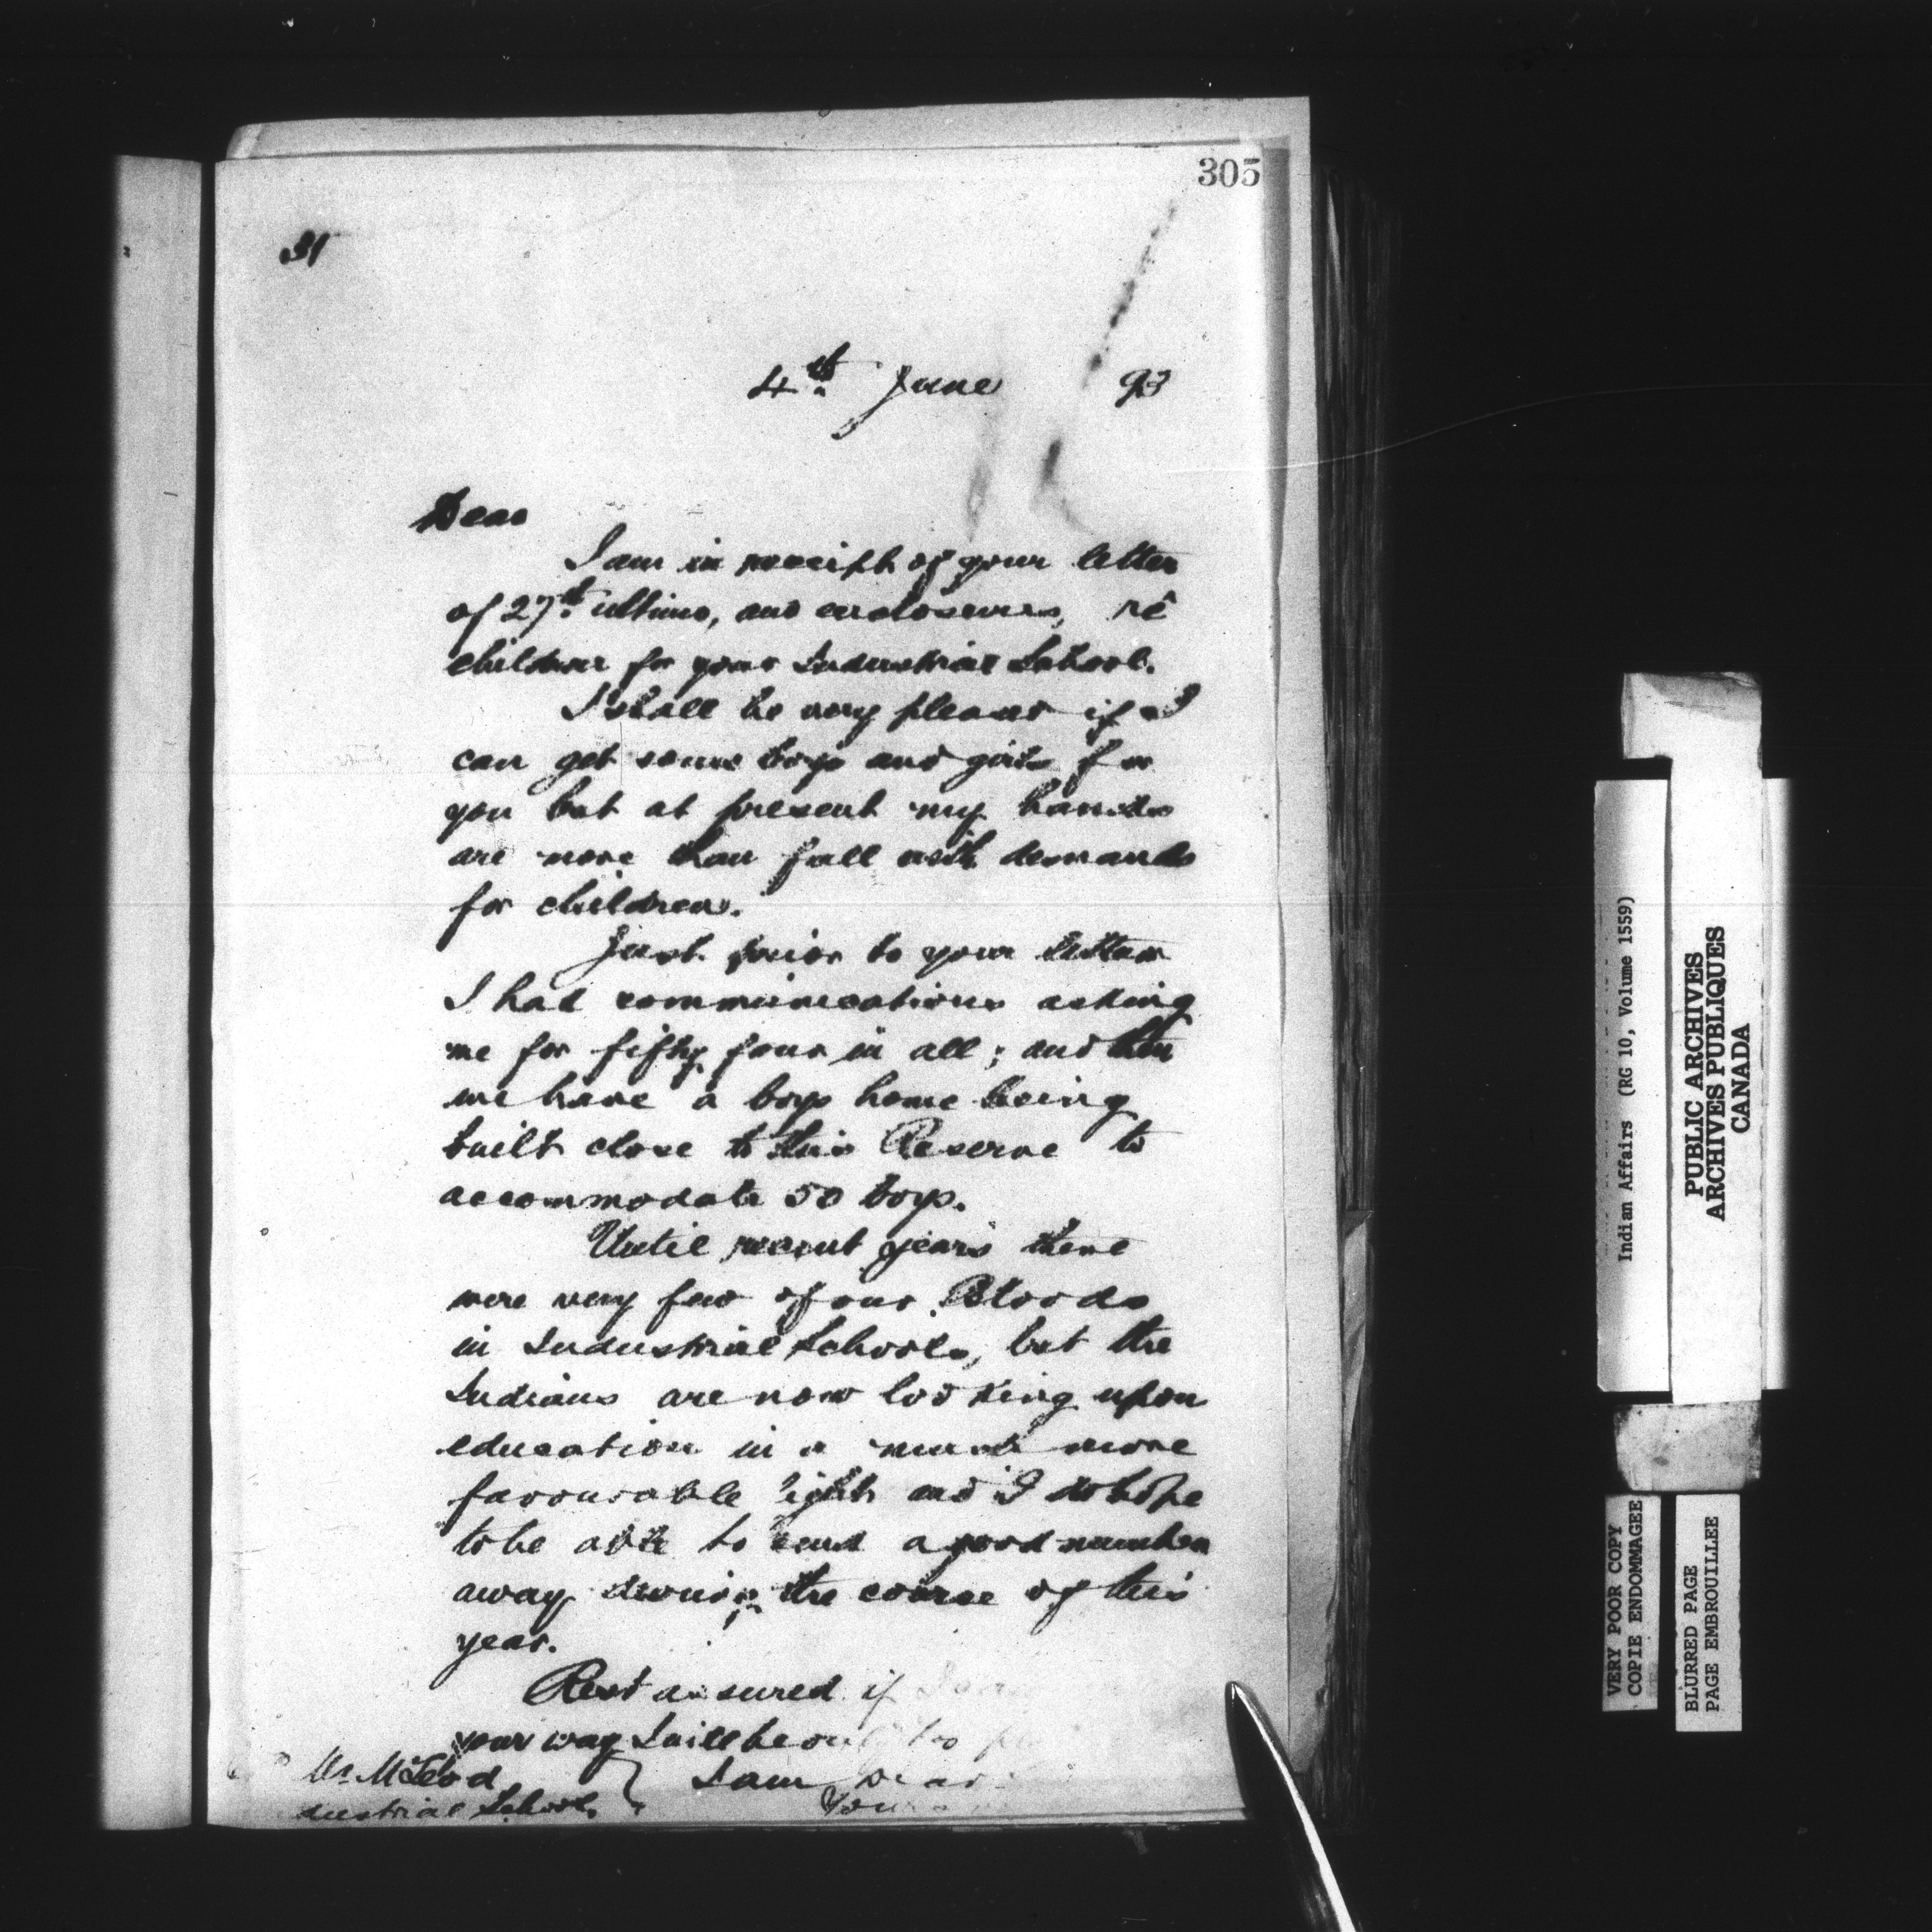 305
31
4th June 93
Dear
I am in receipt of your letter
of 27th ultimo, and enclosures, rê
children for your Industrial School.
I shall be very pleased if I
can get some boys and girls for
you but at present my hands
are more than full with demands
for children.
Just prior to your letter
I had communications asking
me for fifty four in all; and then
we have a boys home being
built close to this Reserve to
accommodate 50 boys.
Until recent years there
were very few of our Bloods
in Industrial Schools, but the
Indians are now looking upon
education in a much more
favourable light and I do hope
to be able to send a good number
away during the course of this
year.
Rest assured if
your way I will be only too
Mr McLeod
I am Dear
dustrial School
Indian Affairs (RG 10, Volume 1559)
PUBLIC ARCHIVES
ARCHIVES PUBLIQUES
CANADA
VERY POOR COPY
COPIE ENDOMMAGEE
BLURRED PAGE
PAGE EMBROUILLEE